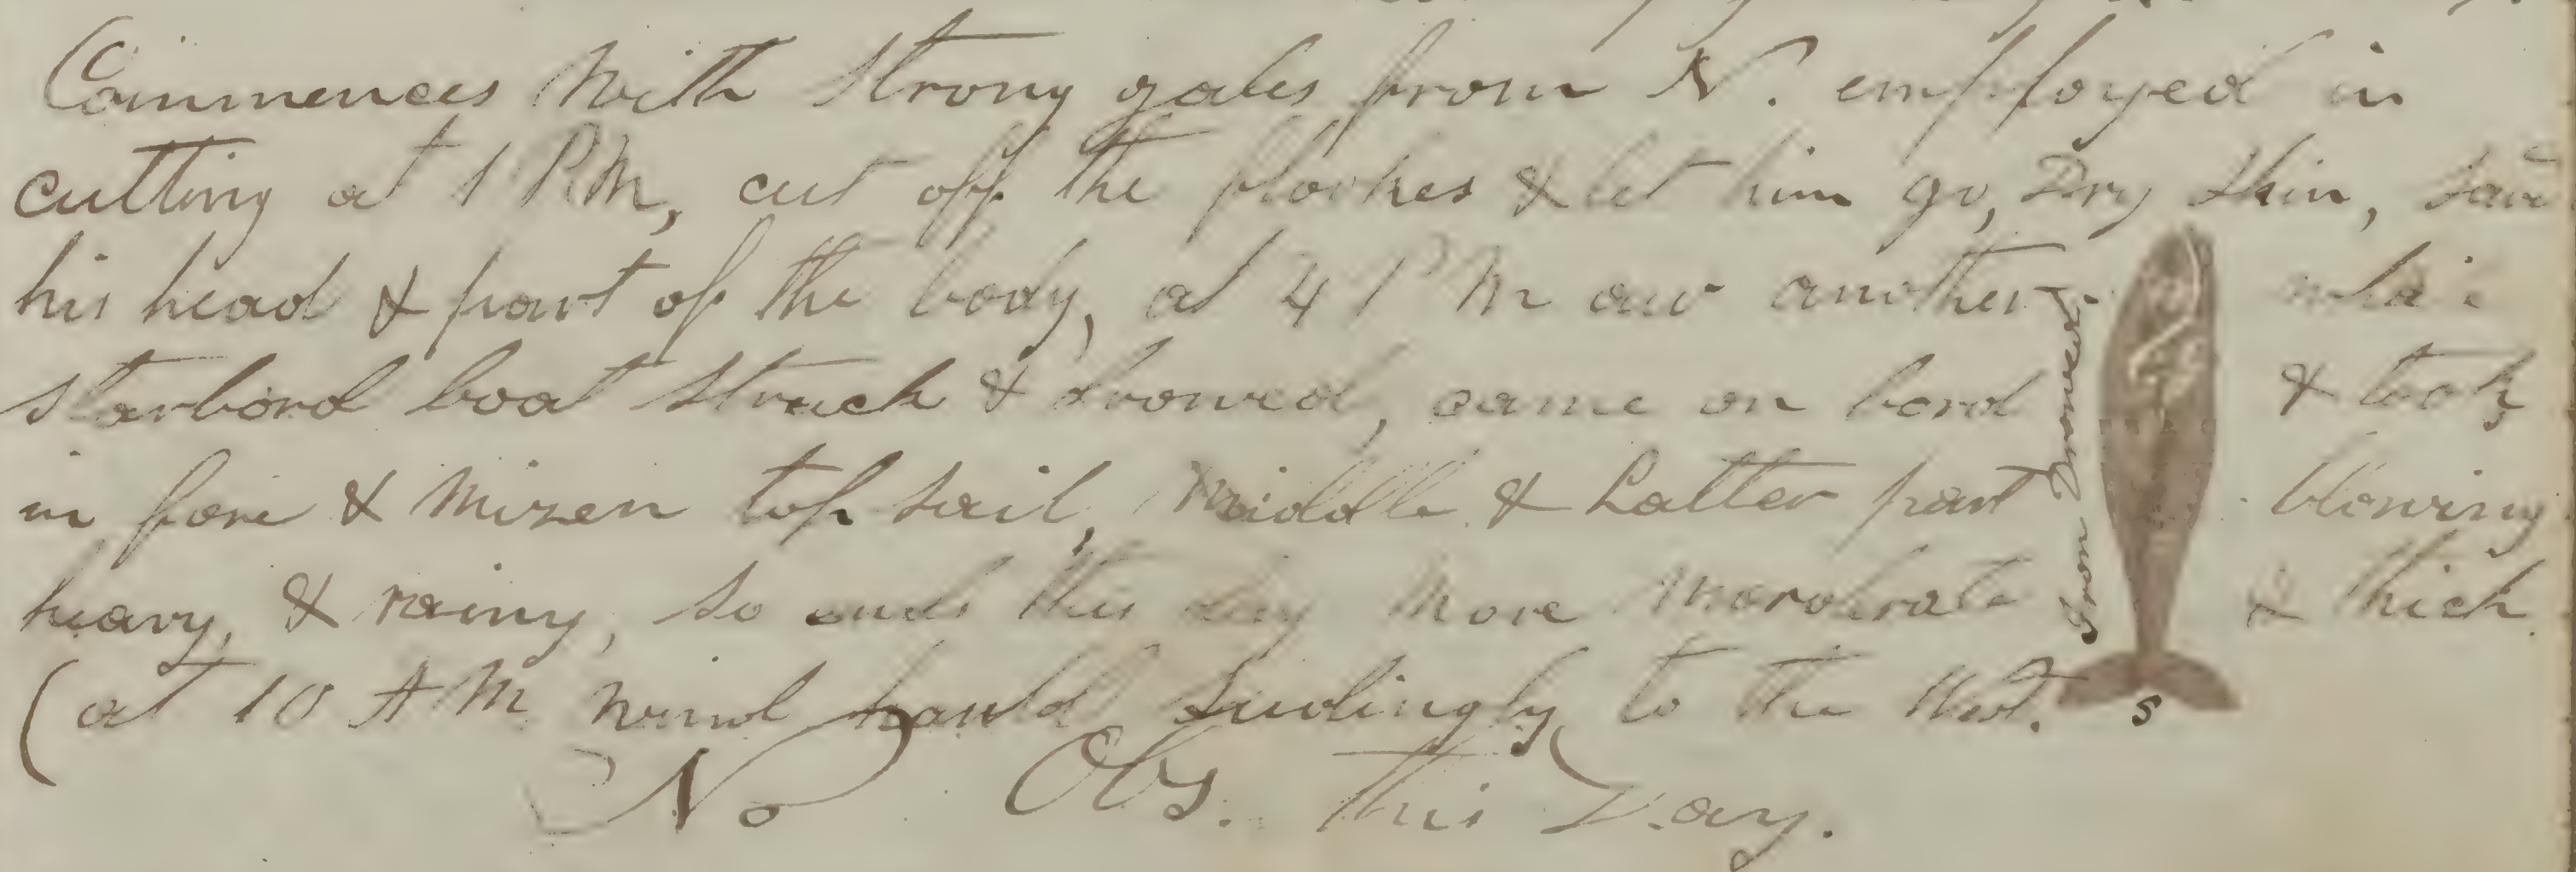 Commences With strong gales from N. employed in
cutting at 1 PM, cut off the flookes & let him go, Dry skin, save
his head & part of the body, at 4 PM saw another whale
starbord boat struck & drowed, came on bord & took
in fore & Mizen top sail, Middle & Latter part blowing
heavy, & rainy, so ends this day More Moroderate & thick
(at 10 AM wind hauld Sudingly to the West.
No Obs. this Day.
Iron Drowed.
S